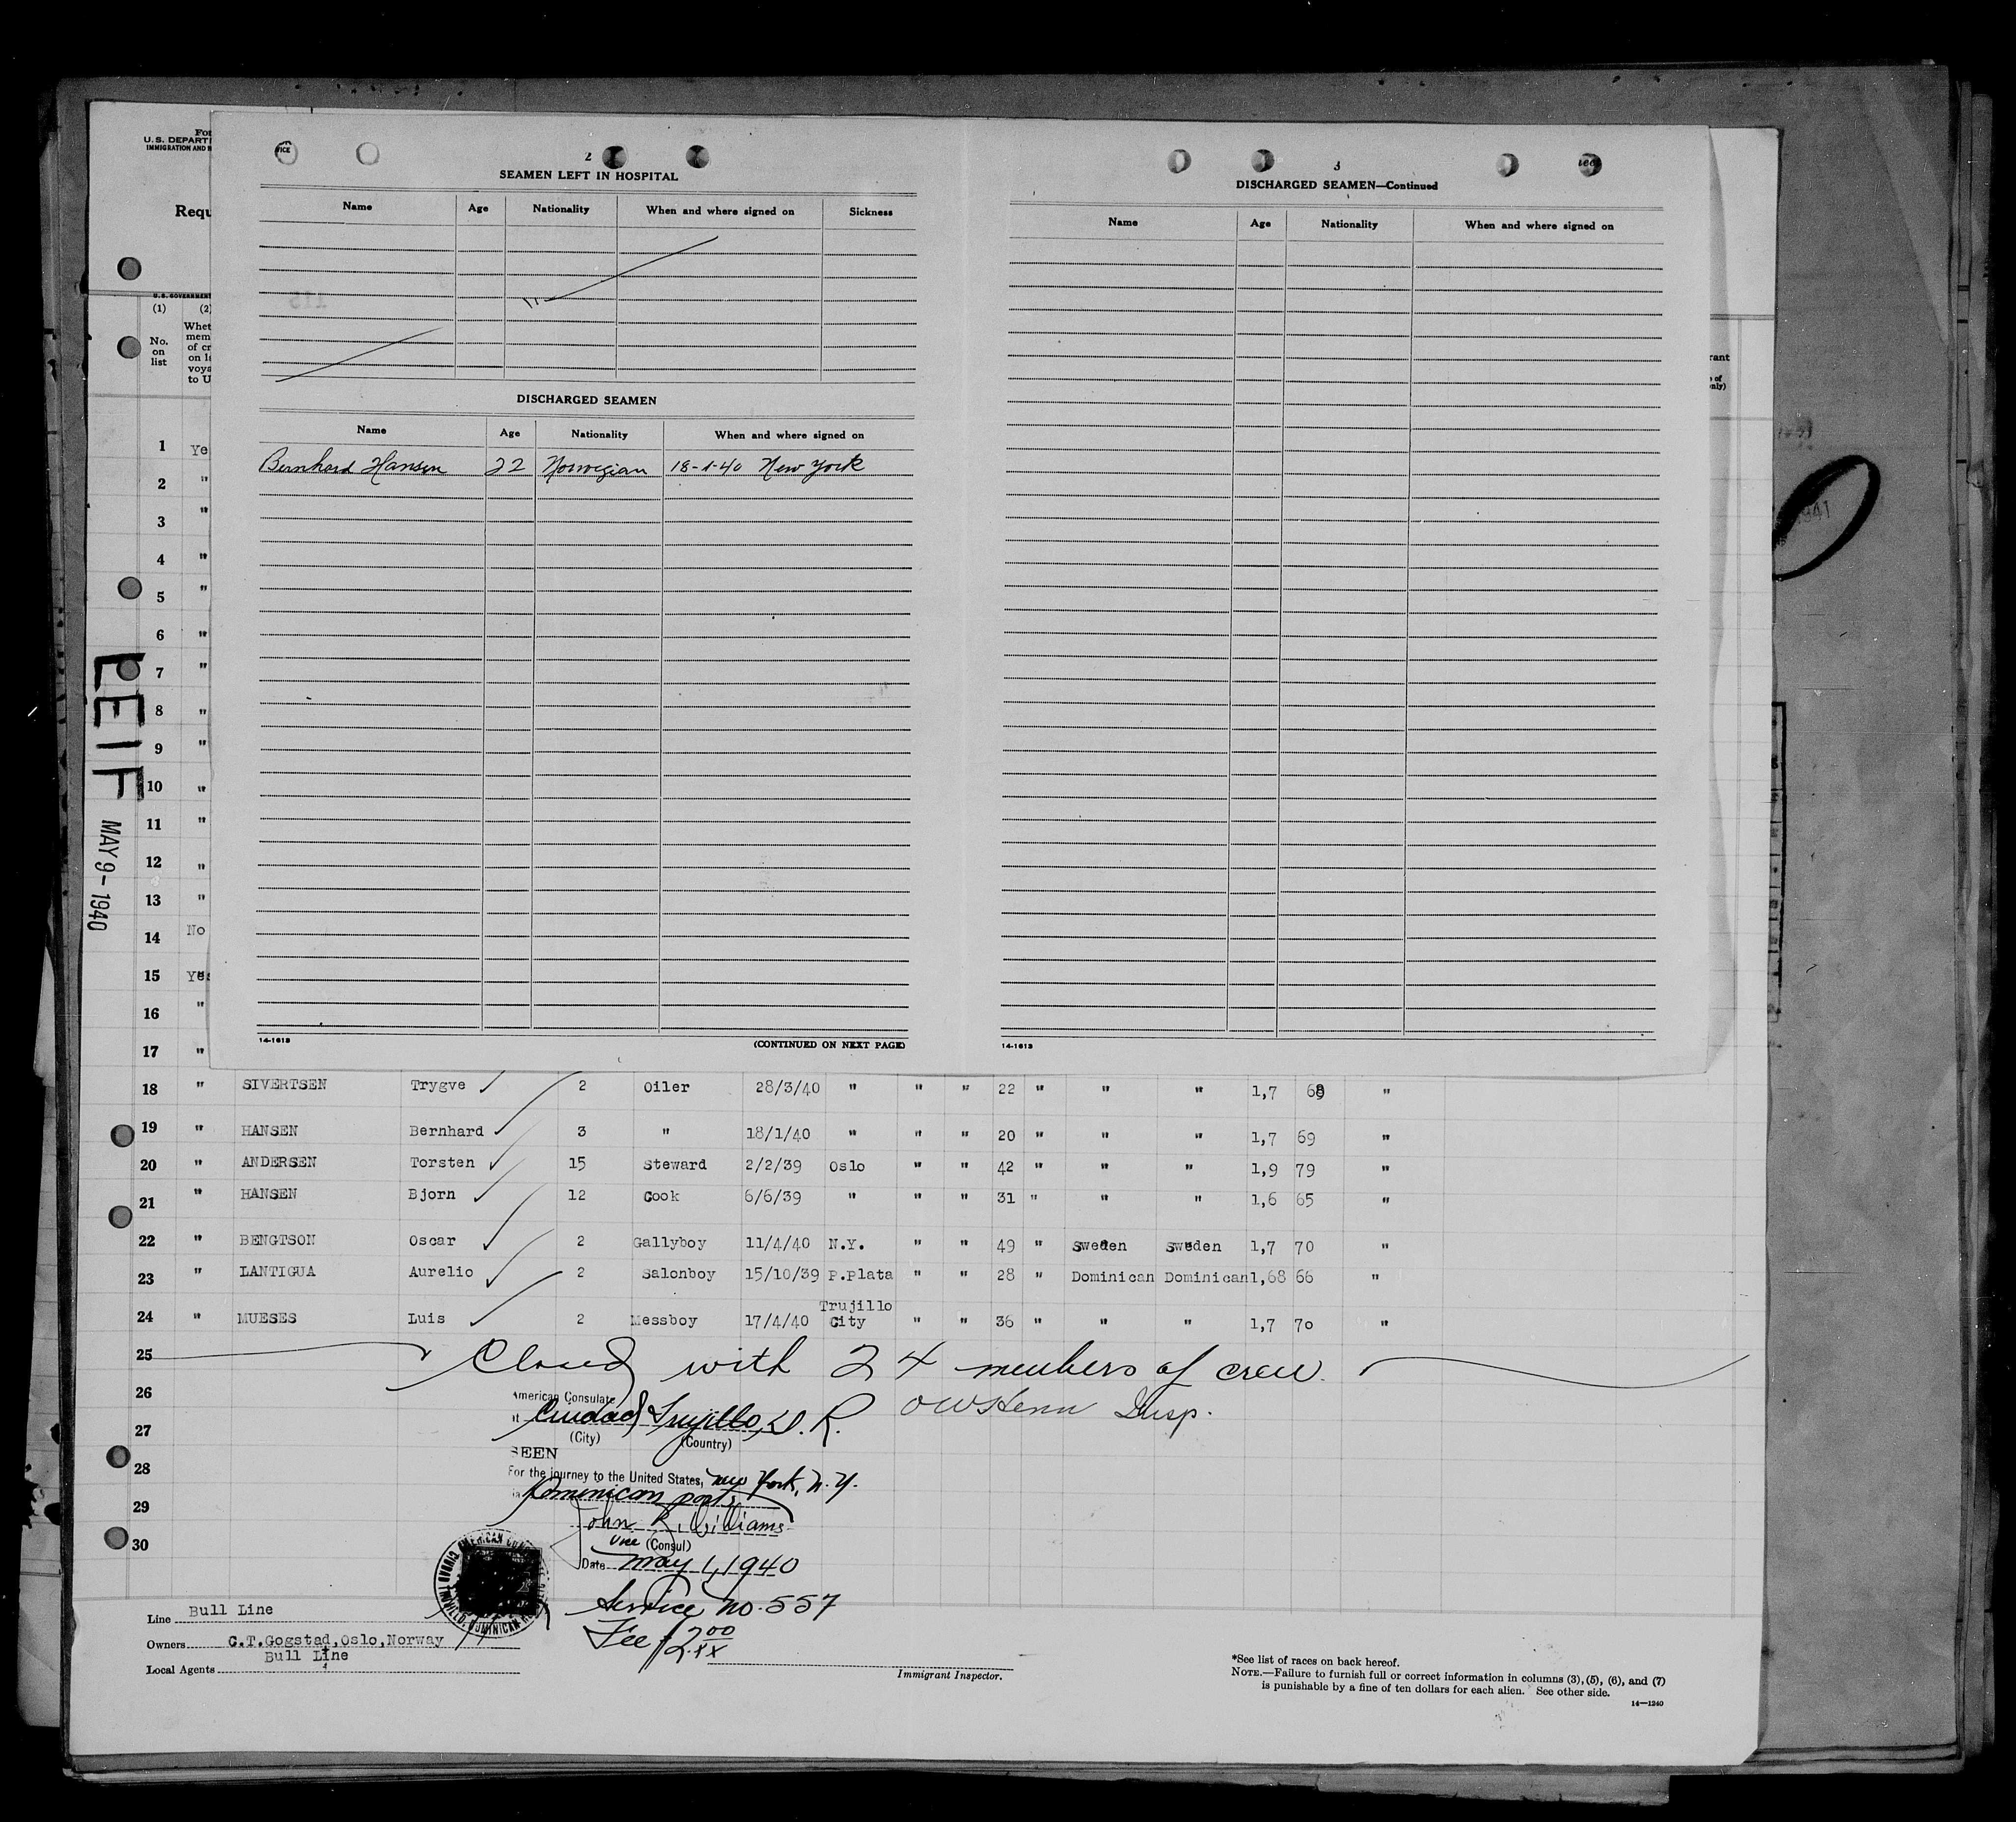 For
U.S. DEPARTM
IMMIGRATION AND N
Requ
U.S. GOVERNMENT
(1) (2)
No. on list
Whet
mem
of cr
on la
voya
to U
VICE
2
SEAMEN LEFT IN HOSPITAL
Name Age Nationality When and where signed on Sickness
DISCHARGED SEAMEN
Name Age Nationality When and where signed on
Bernhard Hansen 22 Norwegian 18-1-40 New York
14-1613 (CONTINUED ON NEXT PAGE)
3
DISCHARGED SEAMEN—Continued
Name Age Nationality When and where signed on
14-1613
rant
e of
nly)
1941
LEIF MAY 9-1940
1 Ye
2 "
3 "
4 "
5 "
6 "
7 "
8 "
9 "
10 "
11 "
12 "
13 "
14 No
15 Yes
16 "
17 "
18 " SIVERTSEN Trygve 2 Oiler 28/3/40 " " " 22 " " " 1,7 68 "
19 " HANSEN Bernhard 3 " 18/1/40 " " " 20 " " " 1,7 69 "
20 " ANDERSEN Torsten 15 Steward 2/2/39 Oslo " " 42 " " " 1,9 79 "
21 " HANSEN Bjorn 12 Cook 6/6/39 " " " 31 " " " 1,6 65 "
22 " BENGTSON Oscar 2 Gallyboy 11/4/40 N.Y. " " 49 " Sweden Sweden 1,7 70 "
23 " LANTIGUA Aurelio 2 Salonboy 15/10/39 P.Plata " " 28 " Dominican Dominican 1,68 66 "
24 " MUESES Luis 2 Messboy 17/4/40 Trujillo City " " 36 " " " 1,7 70 "
25 Closed with 24 members of crew.
26
27
28
29
30
American Consulate
Ciudad Trujillo, D. R. Insp.
(City) (Country)
SEEN
For the journey to the United States, New York, N.Y.
Dominican ports
John R. Williams
Vice (Consul)
Date May 1, 1940
Service No. 557
Fee $2.00
xx
Line Bull Line
Owners C.T.Gogstad,Oslo,Norway
Local Agents Bull Line
Immigrant Inspector.
*See list of races on back hereof.
NOTE.—Failure to furnish full or correct information in columns (3), (5), (6), and (7)
is punishable by a fine of ten dollars for each alien. See other side.
14—1240